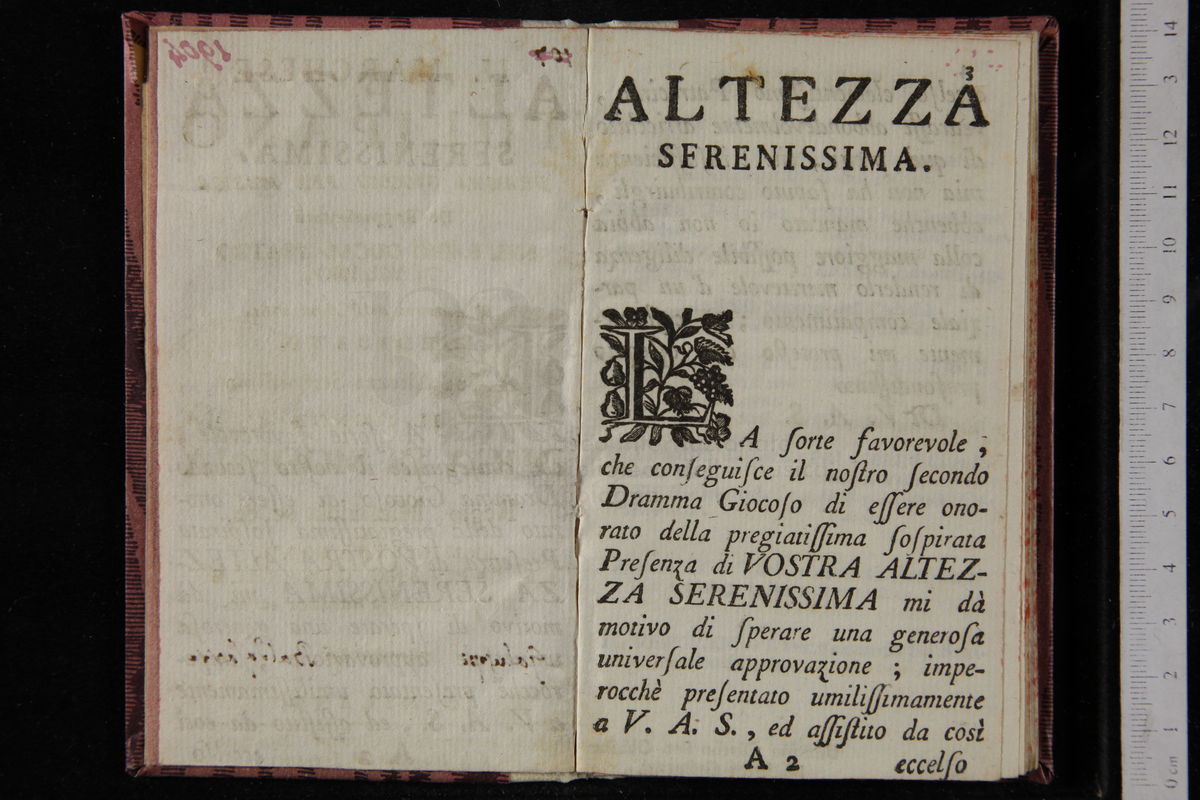 3
ALTEZZA
SERENISSIMA.
LA ſorte favorevole,
che conſeguiſce il noſtro ſecondo
Dramma Giocoſo di eſſere ono-
rato della pregiatiſſima ſoſpirata
Preſenza di VOSTRA ALTEZ-
ZA SERENISSIMA mi dà
motivo di ſperare una generoſa
univerſale approvazione ; impe-
rocchè preſentato umiliſſimamente
a V. A. S., ed aſſiſtito da così
A 2 eccelſo
0 cm 1 2 3 4 5 6 7 8 9 10 11 12 3 14